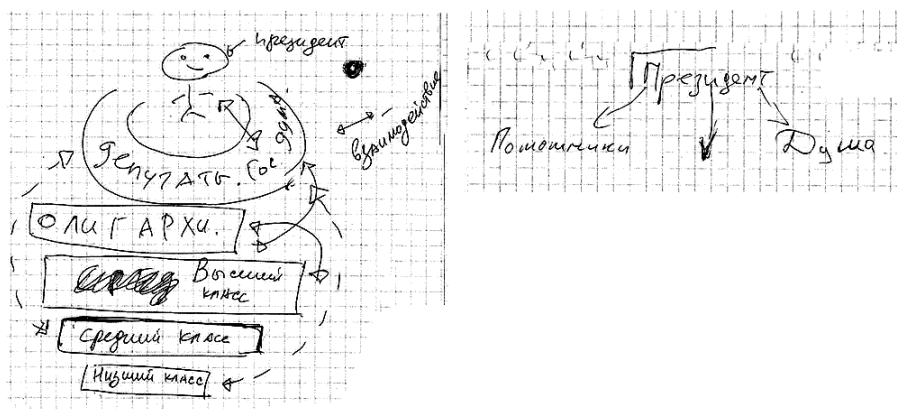 президент
взаимодействие
депутаты. Гос дума.
ОЛИГАРХИ.
Высший
класс
средний класс
Низший класс
Президент
Помошники
Дума